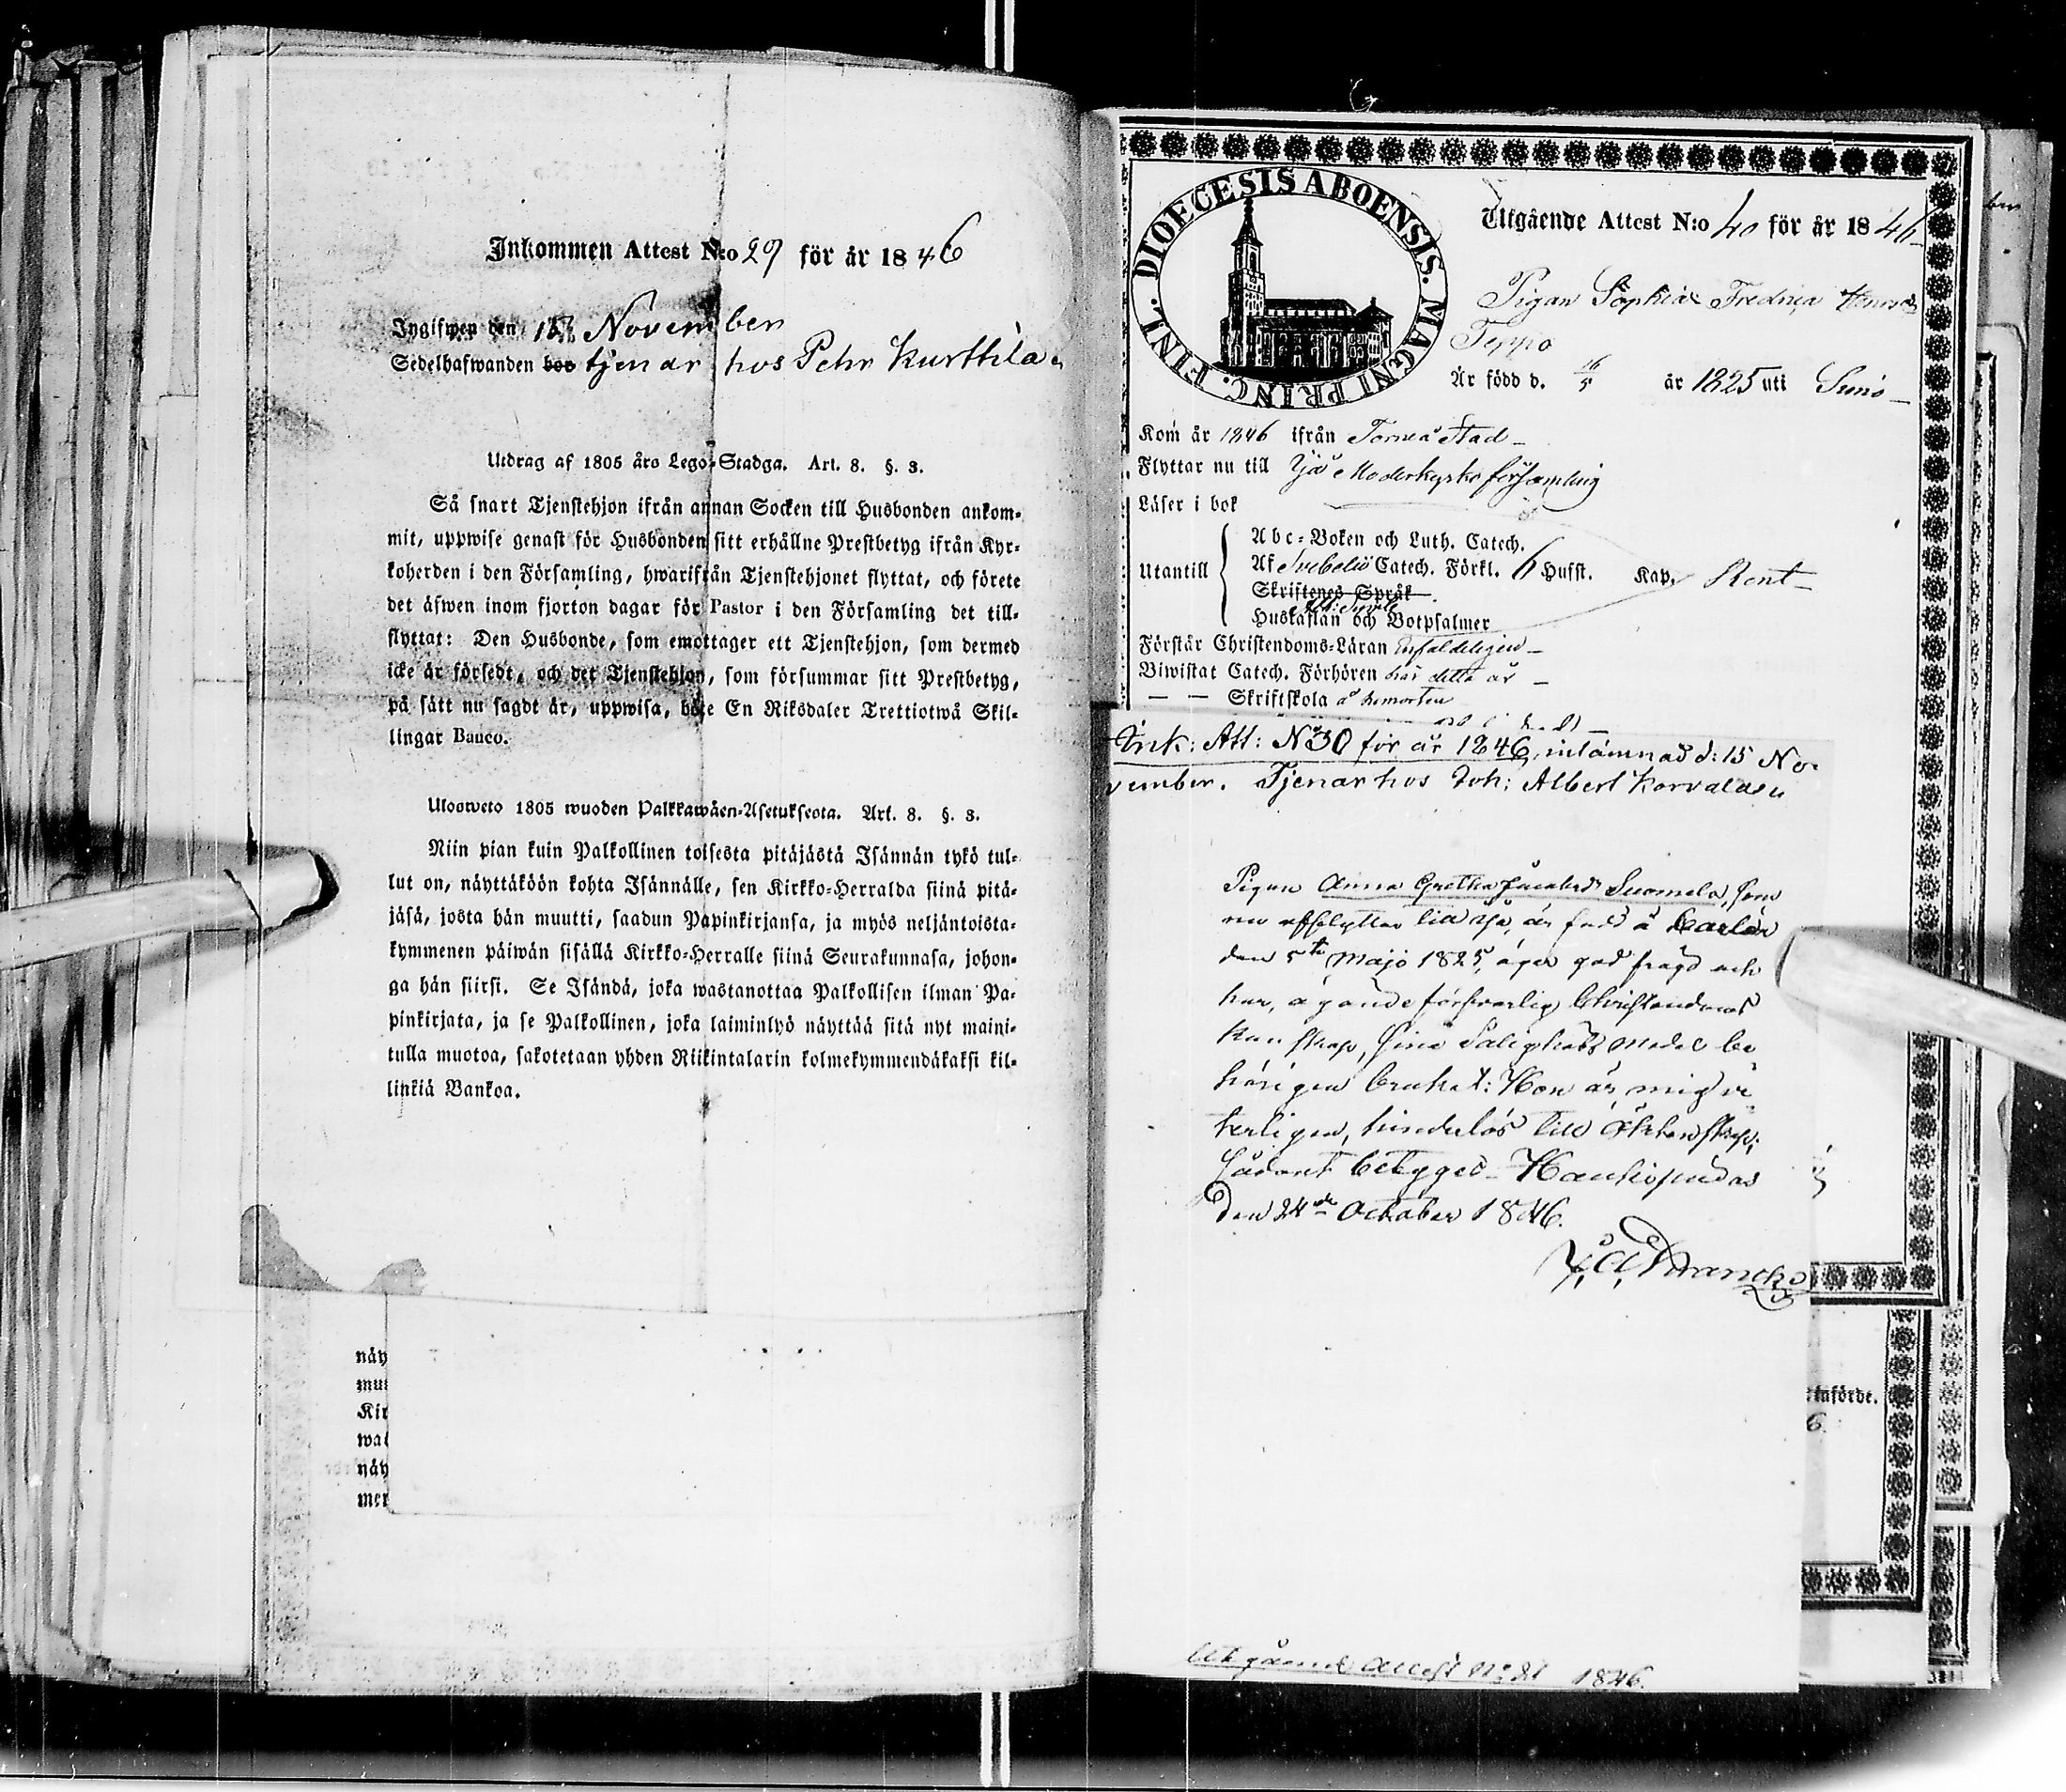 Inkommen Attest N:o 29 för år 1846
Ingifwen den 15 November
Sedelhafwanden bos tjenar hos Pehr Kurttila
Utdrag af 1805 års Lego-Stadga. Art. 8. §. 3.
Så snart Tjenstehjon ifrån annan Socken till Husbonden ankom-
mit, uppwise genast för Husbonden sitt erhållne Prestbetyg ifrån Kyr-
koherden i den Församling, hwarifrån Tjenstehjonet flyttat, och förete
det äfwen inom fjorton dagar för Pastor i den Församling det till-
flyttat: Den Husbonde, som emottager ett Tjenstehjon, som dermed
icke är försedt, och det Tjenstehjon, som försummar sitt Prestbetyg,
på sätt nu sagdt är, uppwisa, böte En Riksdaler Trettiotwå Skil-
lingar Banco.
Ulosweto 1805 wuoden Palkkawäen-Asetuksesta. Art. 8. §. 3.
Niin pian kuin Palkollinen toisesta pitäjästä Isännän tykö tul-
lut on, näyttäköön kohta Isännälle, sen Kirkko-Herralda siinä pitä-
jäsä, josta hän muutti, saadun Papinkirjansa, ja myös neljäntoista-
kymmenen päiwän sisällä Kirkko-Herralle siinä Seurakunnasa, johon-
ga hän siirsi. Se Isändä, joka wastanottaa Palkollisen ilman Pa-
pinkirjata, ja se Palkollinen, joka laiminlyö näyttää sitä nyt maini-
tulla muotoa, sakotetaan yhden Riikintalarin kolmekymmendäkaksi kil-
linkiä Bankoa.
näy
mu
Kir
wa
näy
mer
DIOECESIS ABOENSIS. MAGNI PRINC. FINL.
Utgående Attest N:o 40 för år 1846
Pigan Sophia Fredrica
Teppo
Är född d. 16/5 år 1825 uti Simo
Kom år 1846 ifrån Torneå Stad
Flyttar nu till Ijå Moderkyrko församling
Läser i bok
Abc-Boken och Luth. Catech.
Utantill Af Svebelii Catech. Förkl. 6 Hufst. Kap. Rent
Skriftenes Språk
Hustaflan och Botpsalmer
Förstår Christendoms-Läran enfaldeligen
Biwistat Catech. Förhören här detta år
— — Skriftskola å hemorten
Ink: Att: N 30 för år 1846, inlämnad d: 15 No-
vember. Tjenar hos Joh: Albert Karvala
Pigan Anna Gretha Jacobsdr Suomela, som
nu afflyttar till Ijå, är född å Carlön
den 5te Maji 1825, äger god frägd och
har, ägande försvarlig Christendoms
kunskap, sine Salighets medel be
hörigen brukat: Hon är, mig ve
terligen, hinderlös till Äktenskap;
Sådant betygad Haukipudas
den 24de October 1846.
J. A. Francke
infördt.
6.
Utgående Attest No 21 1846.